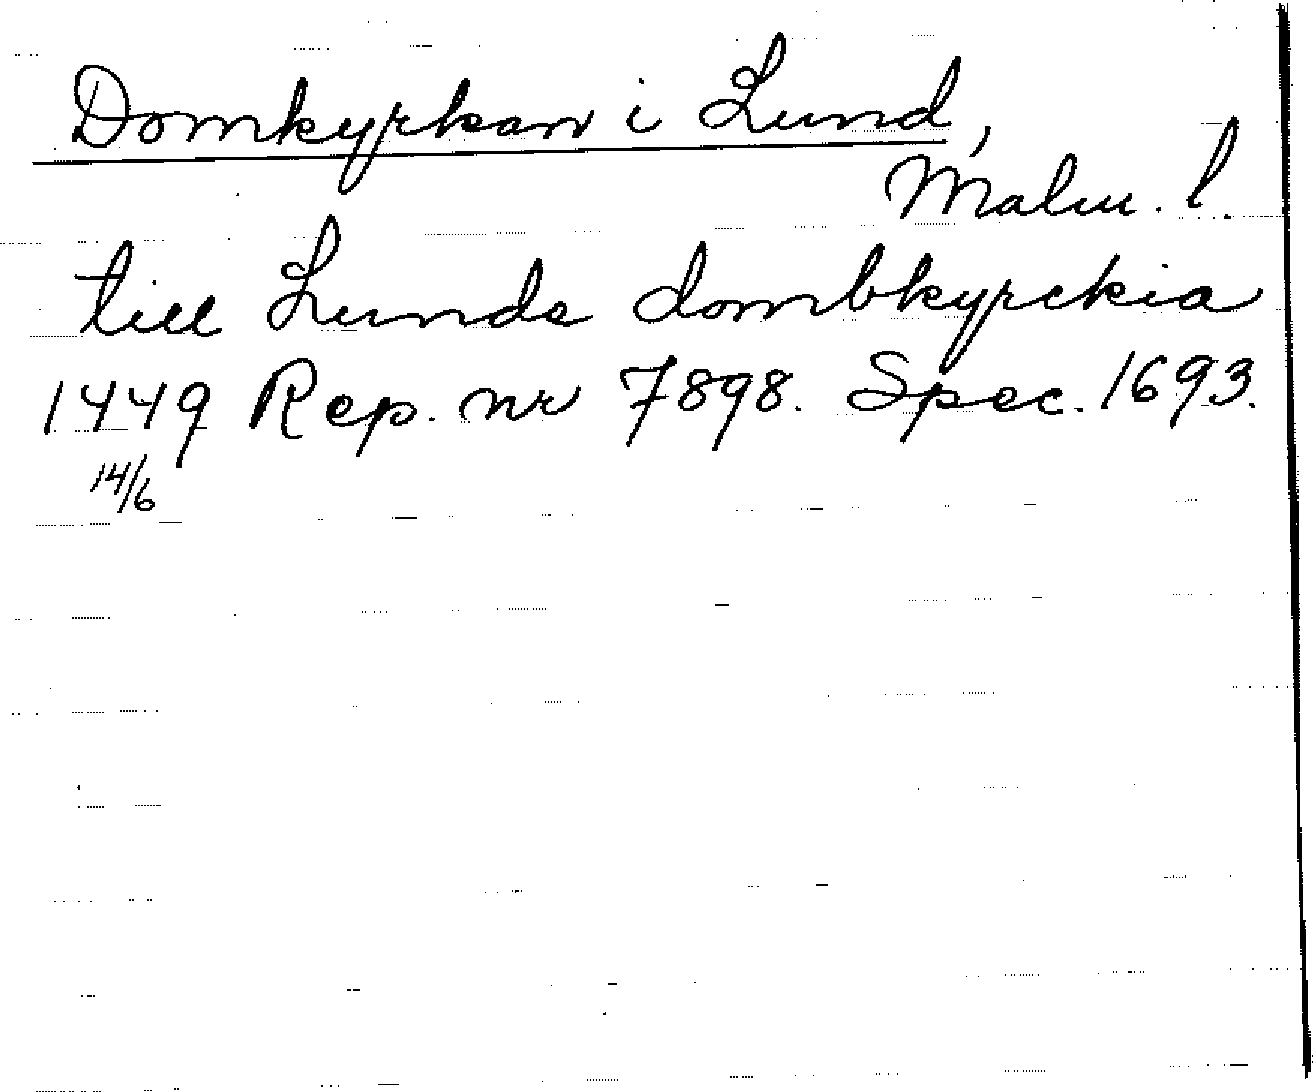 Domkyrkan i Lund,
Malm. l.
till Lunds dombkyrckia
1449 Rep. nr 7898. Spec. 1693.
14/6